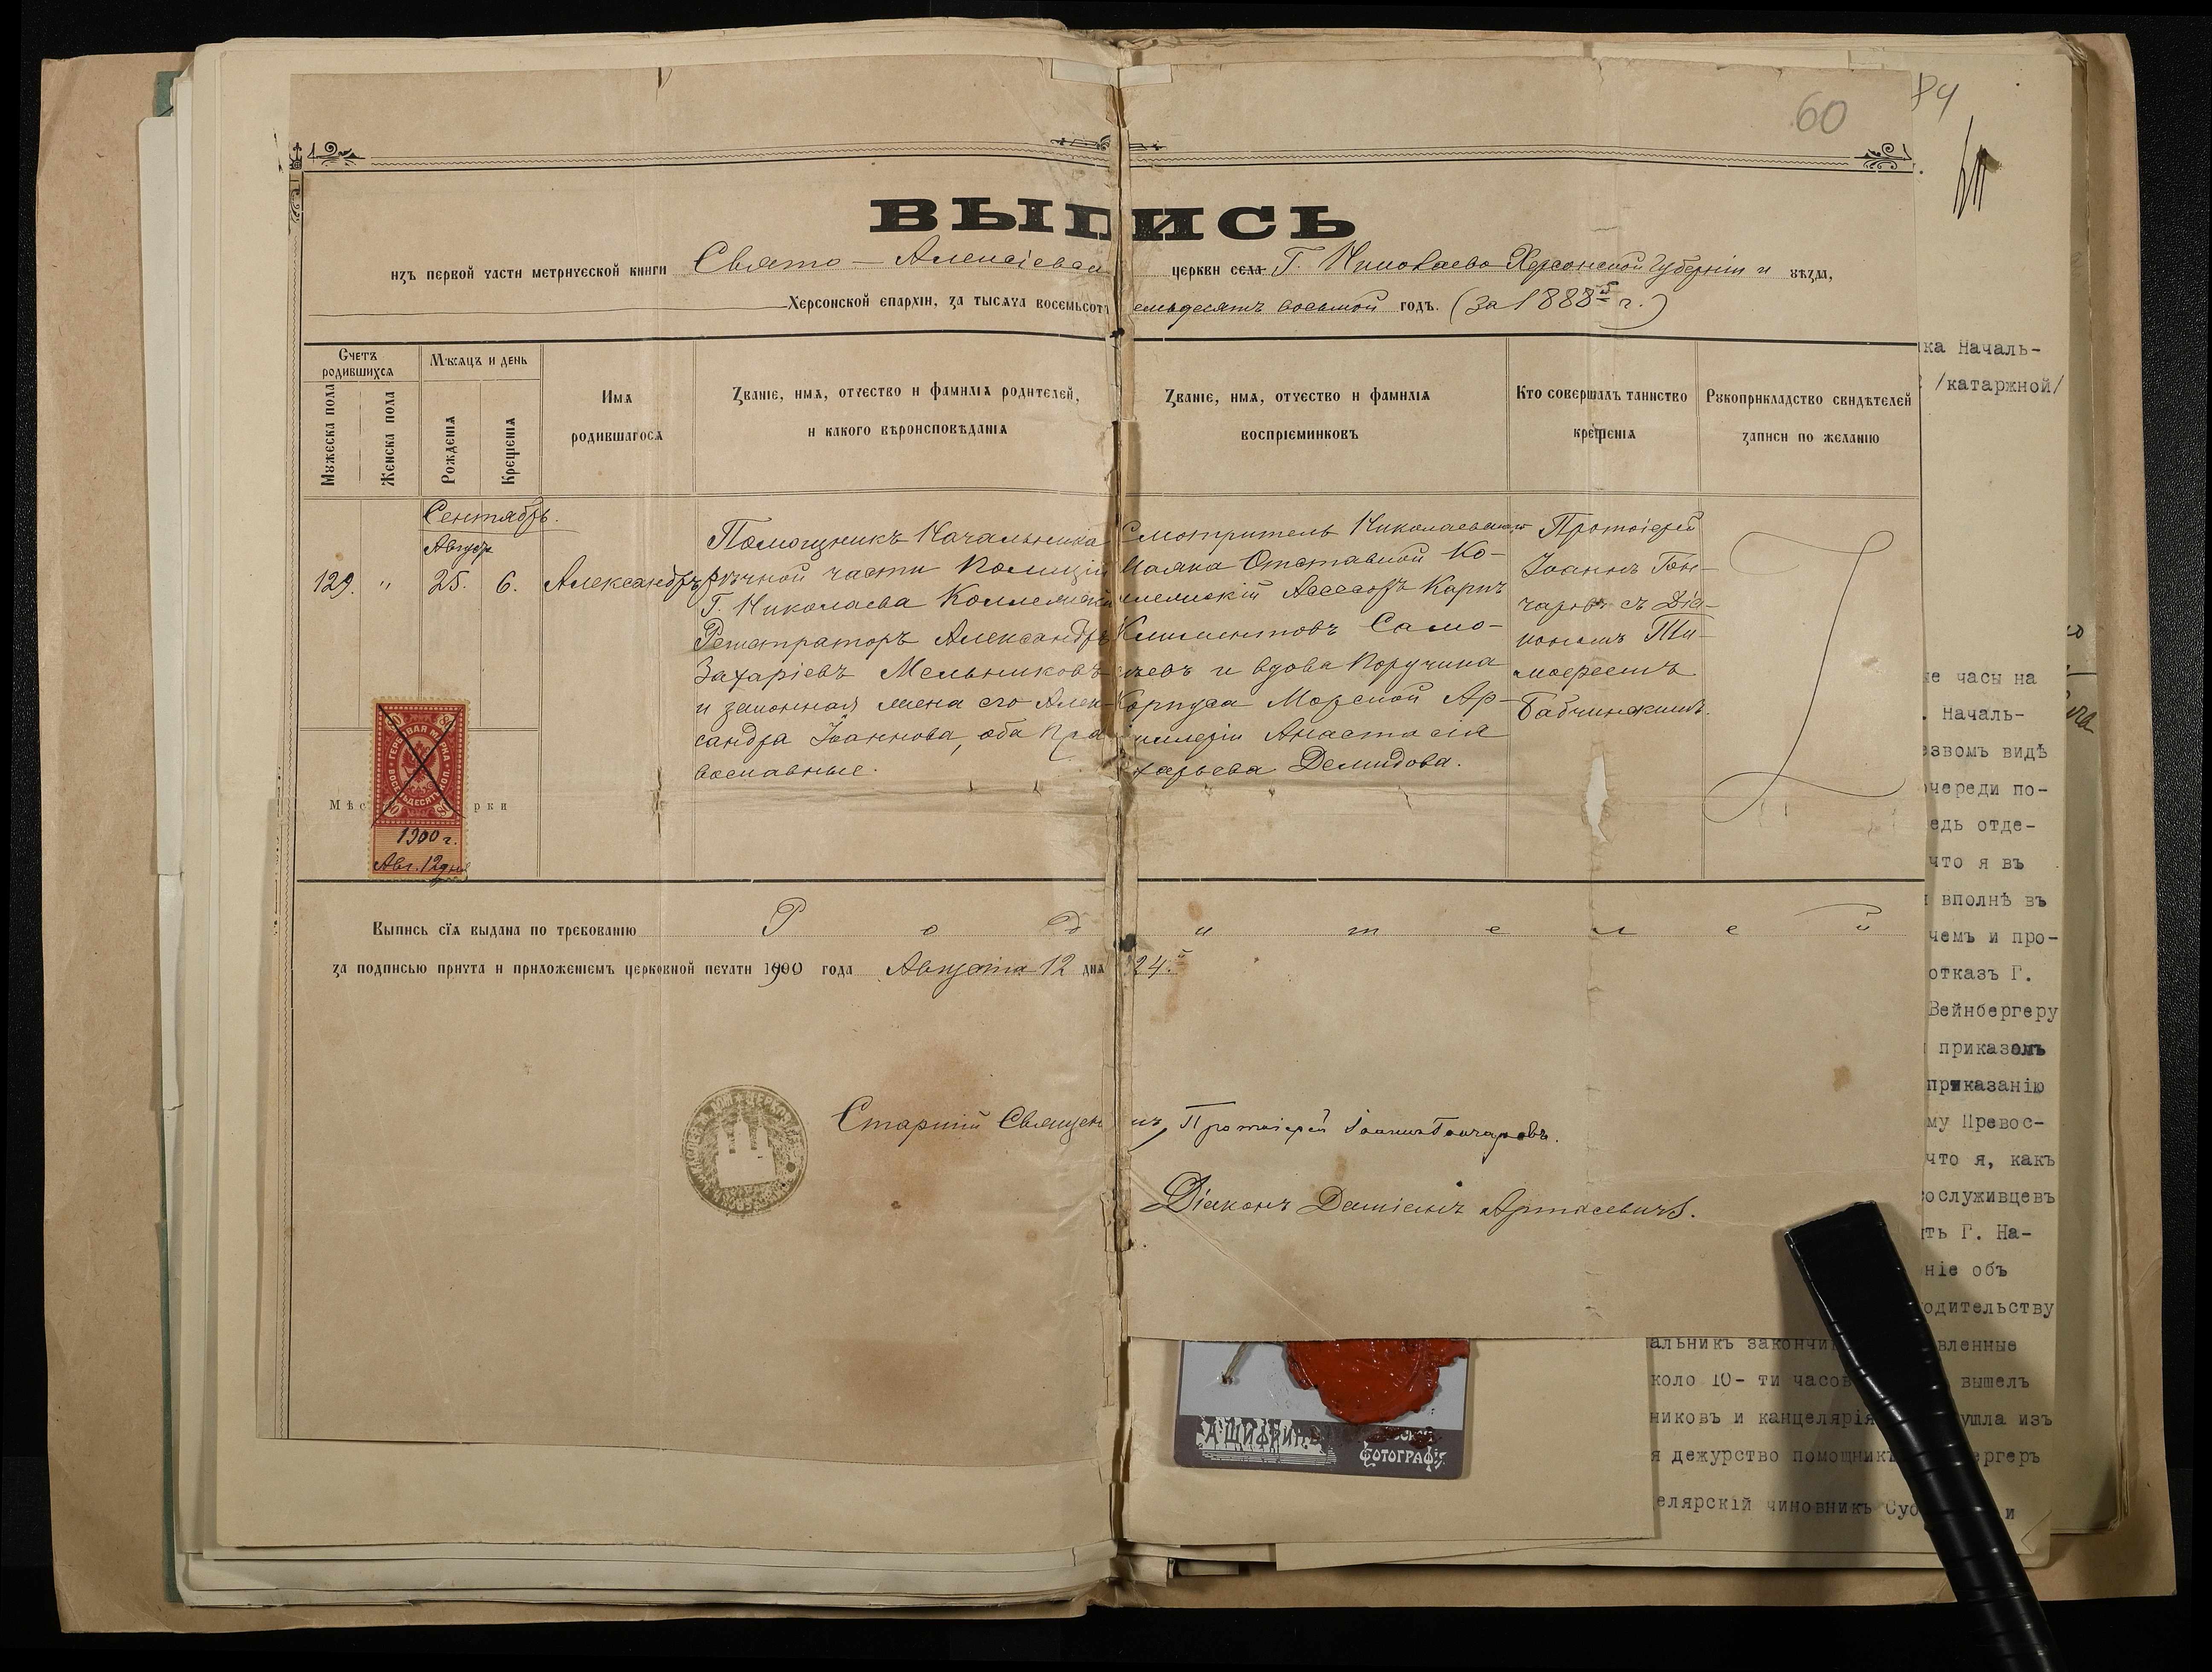 60
84
ВЫПИСЬ
изъ первой части метрической книги Свято-Алексіевск церкви села Г. Николаева Херсонской Губерніи и уѣзда,
Херсонской епархіи, за тысяча восемьсотъ емьдесятъ восьмой годъ. (за 1888 г.)
Счетъ родившихся
Мѣсяцъ и день
Мужеска пола
Женска пола
Рожденія
Крещенія
Имя родившагося
Званіе, имя, отчество и фамилія родителей, и какого вѣроисповѣданія
Званіе, имя, отчество и фамилія воспріемниковъ
Кто совершалъ таинство крещенія
Рукоприкладство свидѣтелей записи по желанію
Сентябрь.
Август
129. " 25. 6. Александръ
Помощникъ Начальника
рѣчной части Полиціи
Г. Николаева Коллежскій
Регистраторъ Александръ
Захаріевъ Мельниковъ
и законная жена его Алек-
сандра Іоаннова, оба Пра
вославные.
Смотритель Николаевскаго
Маяка Отставной Ко-
лежскій Ассесоръ Карпъ
Климентовъ Само-
евъ и вдова Поручика
Корпуса Морской Ар-
тиллеріи Анастасія
харьева Демидова.
Протоіерей
Іоаннъ Гон-
чаровъ съ Діа-
кономъ Ти-
моѳеемъ
Бабчинскимъ.
ГЕРБОВАЯ МАРКА
ВОСЕМЬДЕСЯТЪ КОП.
80
Мѣс рки
1900 г.
Авг. 12 дня
Выпись сія выдана по требованію Родителей
за подписью причта и приложеніемъ церковной печати 1900 года Августа 12 дня
Старшій Священ къ, Протоіерей Іоаннъ Гончаровъ.
Діаконъ Даміанъ Артасевичъ.
ФОТОГРАФ
ка Началь-
/катаржной/
е часы на
Началь-
езвомъ видѣ
очереди по-
едь отде-
что я въ
вполнѣ въ
чемъ и про-
отказъ Г.
Вейнбергеру
приказомъ
приказанію
му Превос-
что я, какъ
ослуживцевъ
ть Г. На-
ніе объ
одительству
альникъ закончи вленные
коло 10- ти часов вышелъ
никовъ и канцелярія ушла изъ
я дежурство помощник ергеръ
елярскій чиновникъ Суб и